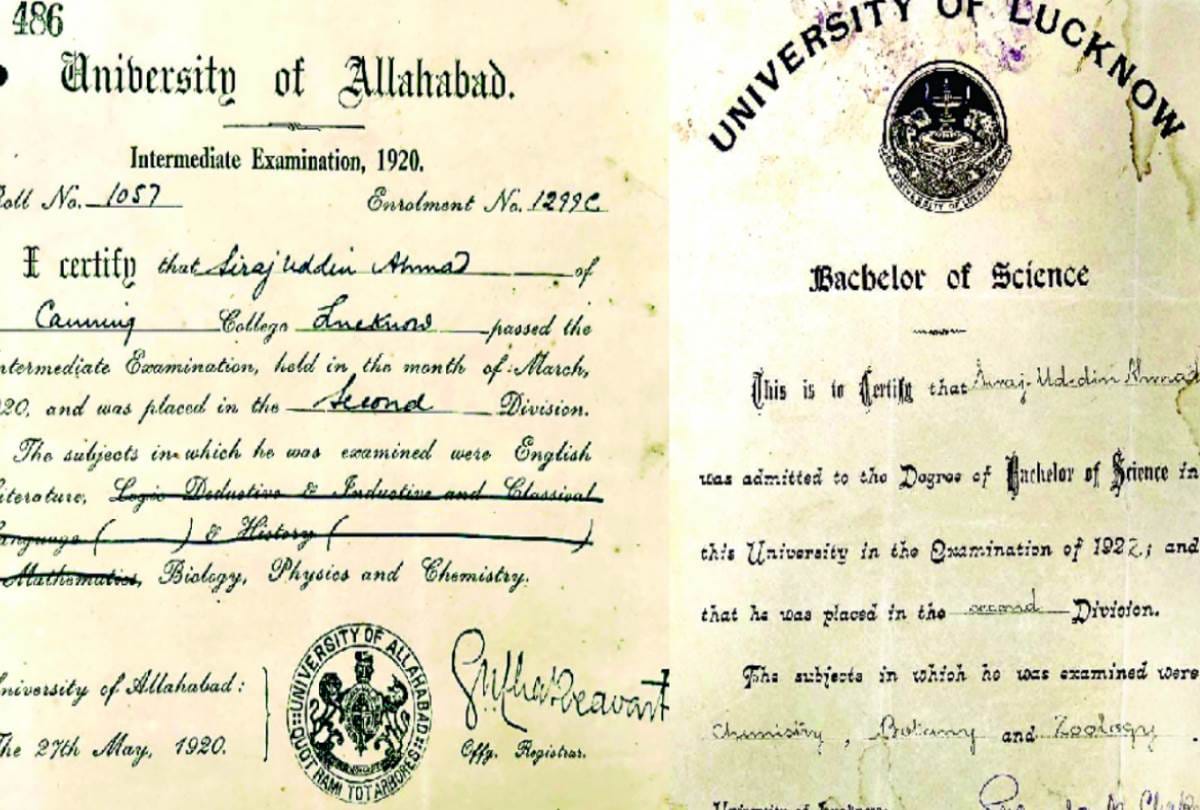 486
University of Allahabad.
Intermediate Examination, 1920.
Roll No. 1057 Enrolment No. 1299C
I certify that Siraj Uddin Ahmad of
Canning College Lucknow passed the
ntermediate Examination, held in the month of March,
20, and was placed in the Second Division.
The subjects in which he was examined were English
iterature, Logic Deductive & Inductive and Classical
anguage ( ) & History ( )
Mathematics, Biology, Physics and Chemistry.
UNIVERSITY OF ALLAHABAD
QUOT RAMI TOT ARBORES
niversity of Allahabad:
The 27th May, 1920.
Offg. Registrar.
UNIVERSITY OF LUCKNOW
UNIVERSITY OF LUCKNOW
Bachelor of Science
This is to Certify that Siraj-Uddin Ahmad
was admitted to the Degree of Bachelor of Science in
this University in the Examination of 1922; and
that he was placed in the second Division.
The subjects in which he was examined were
Chemistry, Botany and Zoology.